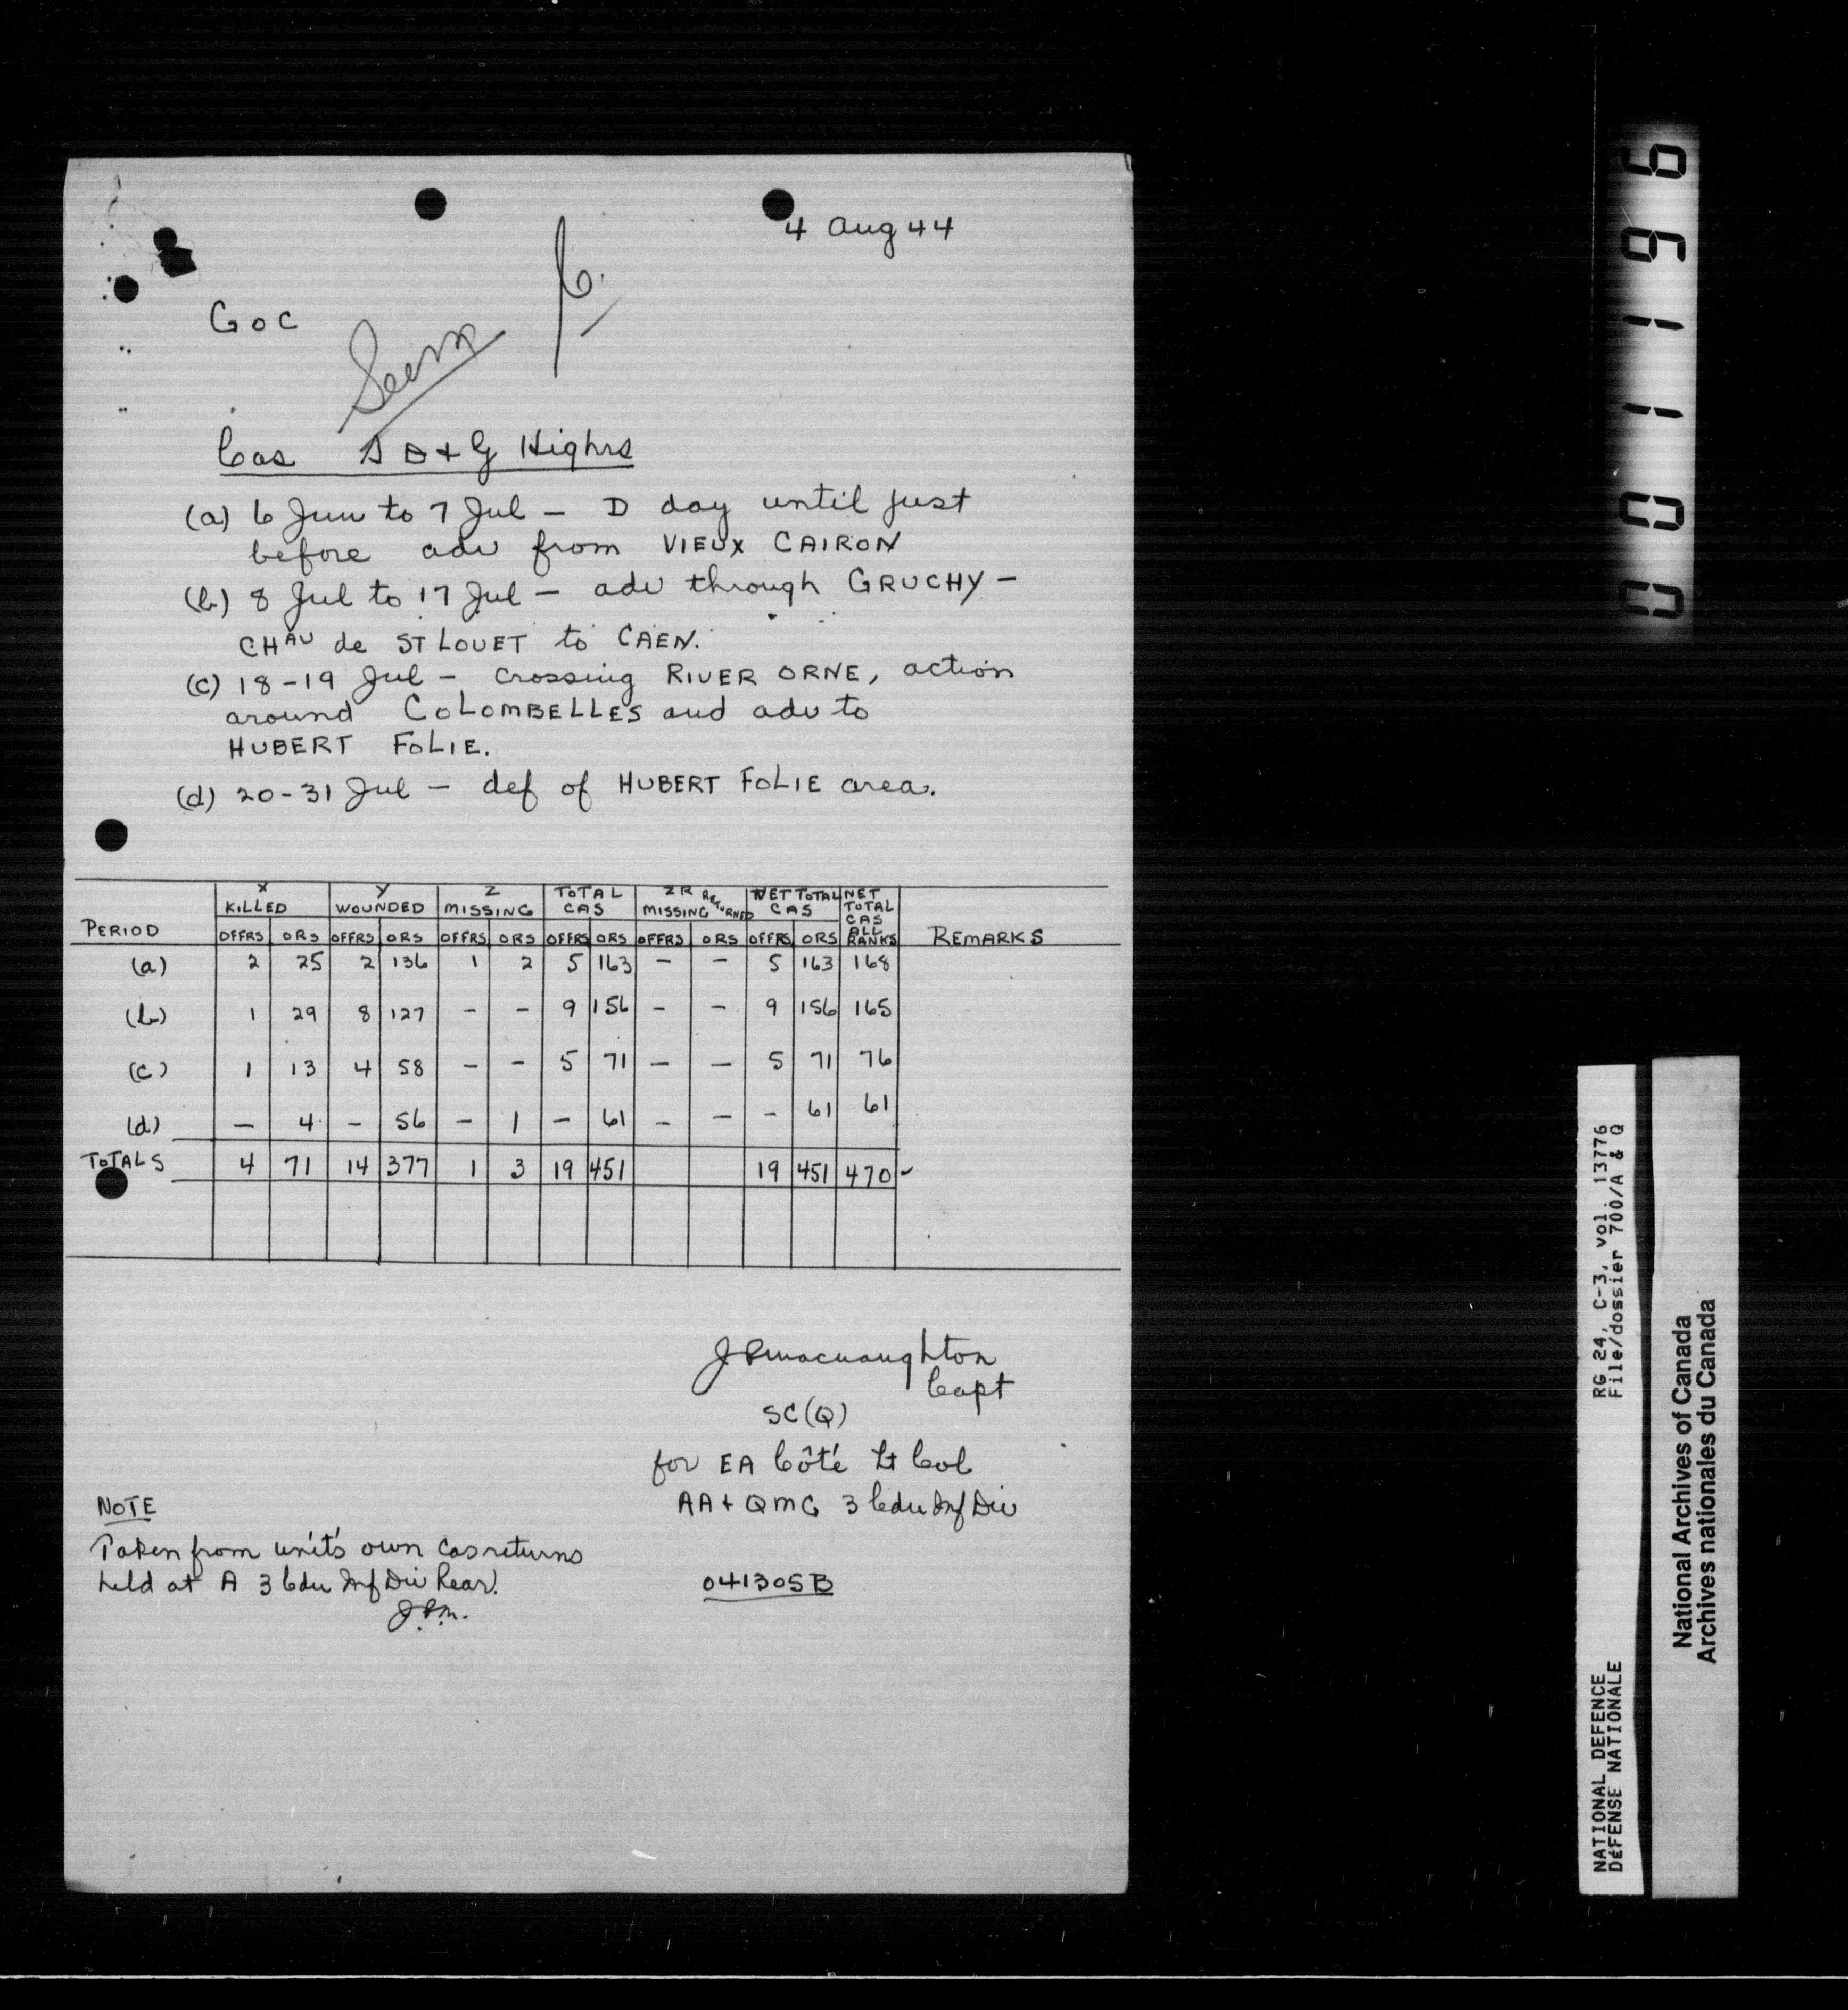 4 Aug 44
GOC
Seen
Cas S D & G Highrs
(a) 6 Jun to 7 Jul - D day until just
before adv from VIEUX CAIRON
(b) 8 Jul to 17 Jul - adv through GRUCHY -
CHAU de ST LOUET to CAEN.
(c) 18-19 Jul - crossing RIVER ORNE, action
around COLOMBELLES and adv to
HUBERT FOLIE.
(d) 20-31 Jul - def of HUBERT FOLIE area.
PERIOD X KILLED Y WOUNDED Z MISSING TOTAL CAS ZR MISSING RETURNED NET TOTAL CAS NET TOTAL CAS ALL RANKS REMARKS
OFFRS ORS OFFRS ORS OFFRS ORS OFFRS ORS OFFRS ORS OFFRS ORS
(a) 2 25 2 136 1 2 5 163 - - 5 163 168
(b) 1 29 8 127 - - 9 156 - - 9 156 165
(c) 1 13 4 58 - - 5 71 - - 5 71 76
(d) - 4 - 56 - 1 - 61 - - - 61 61
TOTALS 4 71 14 377 1 3 19 451 19 451 470 ✓
Macnaughton
Capt
SC(Q)
for EA Côté Lt Col
AA + QMG 3 Cdn Inf Div
NOTE
Taken from unit's own cas returns
held at A 3 Cdn Inf Div Rear.
041305B
0011196
RG 24, C-3, vol. 13776
File/dossier 700/A & Q
NATIONAL DEFENCE
DÉFENSE NATIONALE
National Archives of Canada
Archives nationales du Canada